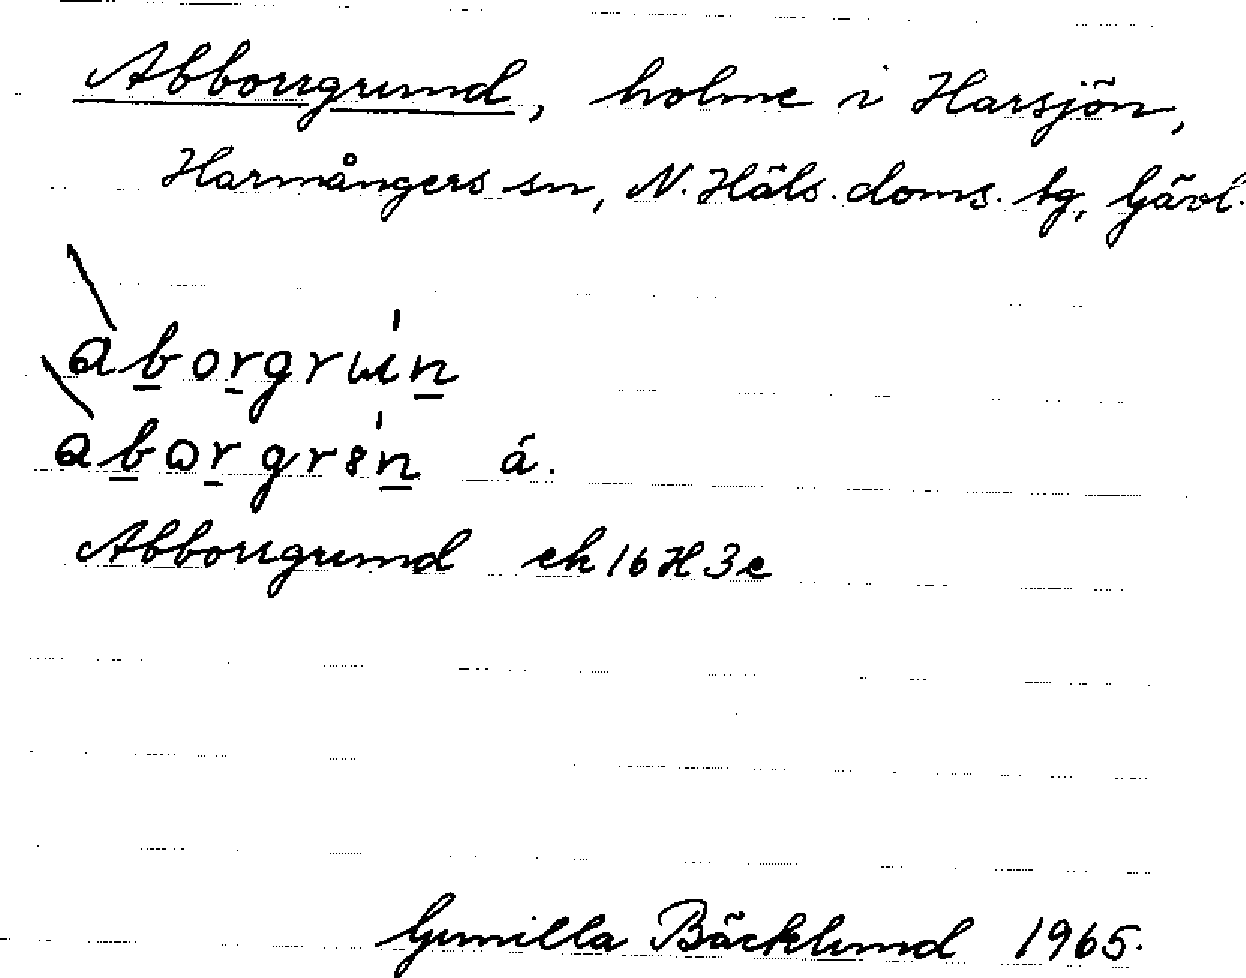 Abborrgrund, holme i Harsjön,
Harmångers sn, N. Häls. doms. tg, Gävl.
àborgrun
àbɷrgrɞn á.
Abborrgrund ek 16 H 3e
Gunilla Bäcklund 1965.